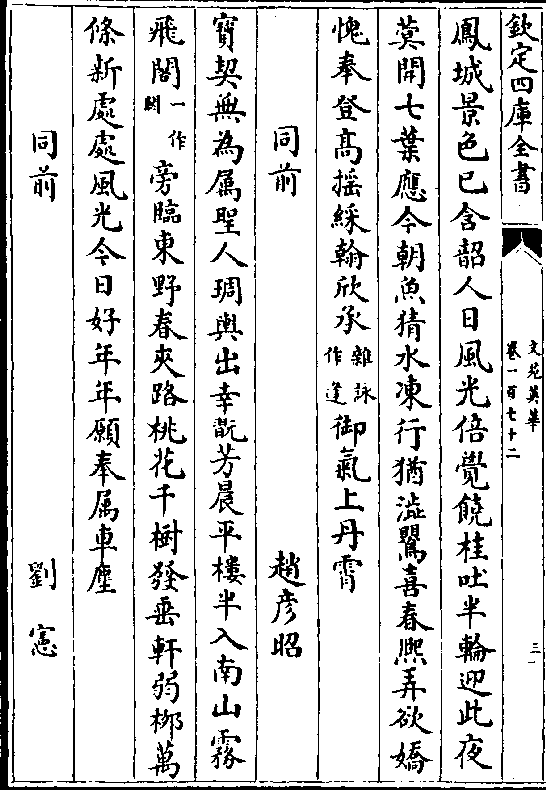 欽定四庫全書
文苑英華
卷一百七十二
三
鳳城景色已含韶人日風光倍覺饒桂吐半輪迎此夜
蓂開七葉應今朝魚猜水凍行猶澁鸎喜春熈弄欲嬌
愧奉登髙揺綵翰欣承雜詠作逢御氣上丹霄
同前 趙彦昭
寳契無為属聖人琱輿出幸翫芳晨平樓半入南山霧
飛閣一作旁臨東野春夾路桃花千樹發垂軒弱栁萬
條新處處風光今日好年年願奉属車塵
同前 劉憲